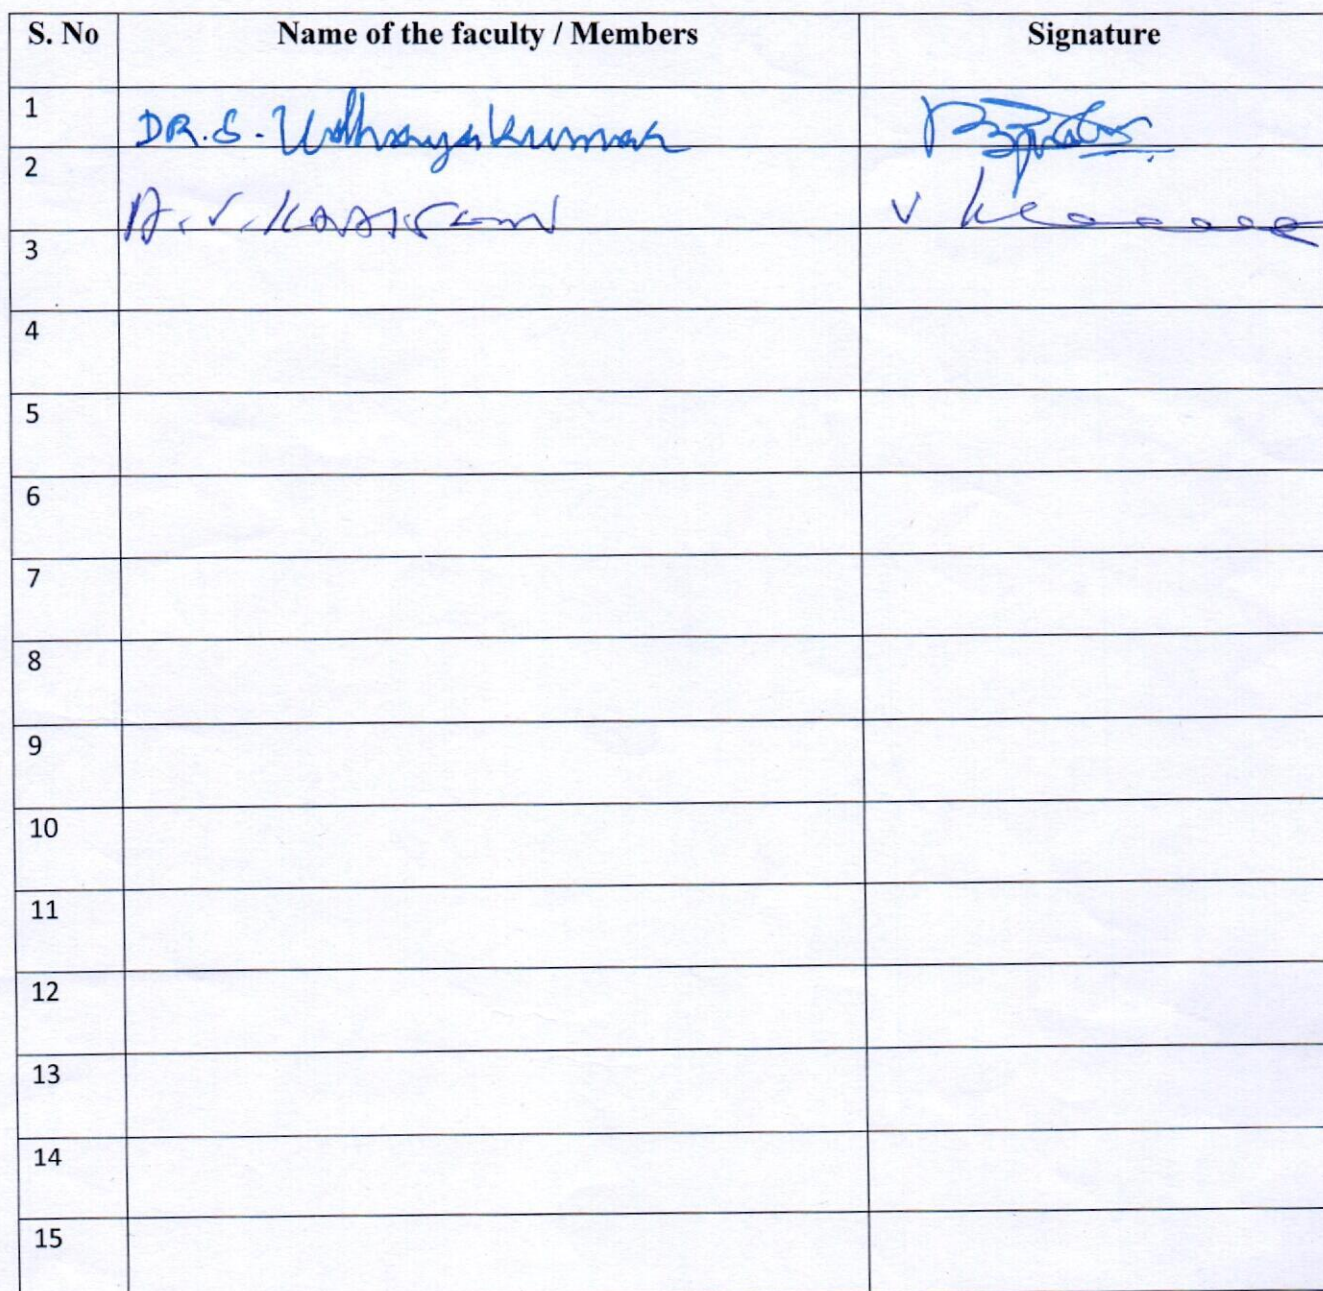 S. No Name of the faculty / Members Signature
1 DR. S. Udhayakumar
2 A. V.
3
4
5
6
7
8
9
10
11
12
13
14
15